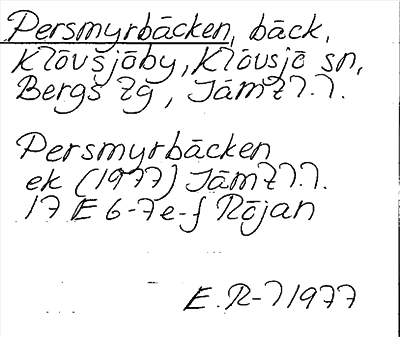 Persmyrbäcken, bäck,
Klövsjöby, Klövsjö sn,
Bergs tg, Jämtl.
Persmyrbäcken
ek (1977) Jämtl.
17 E 6-7e-f Röjan
E. R-l 1977